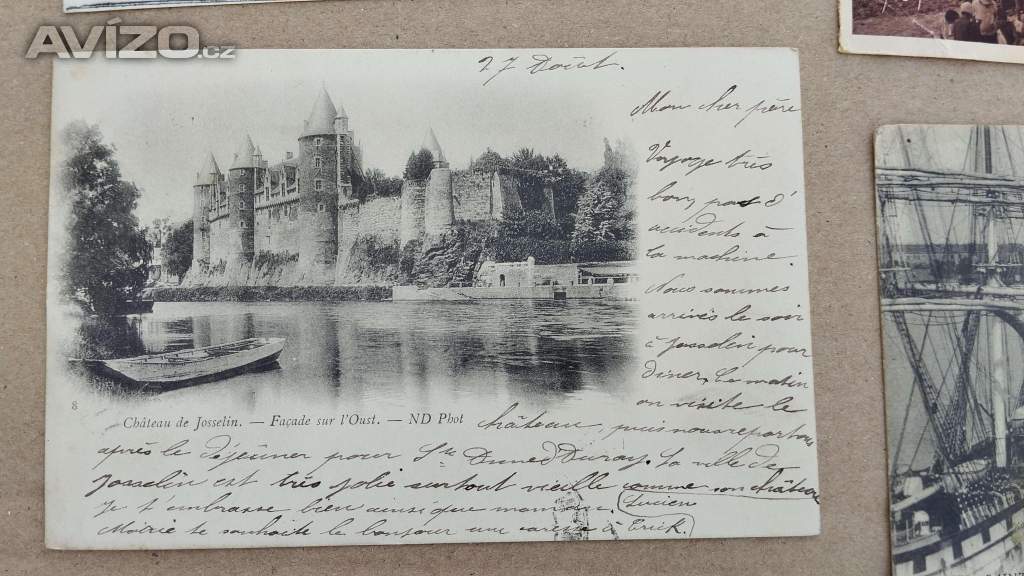 AVÍZO.cz
27 Août.
Mon cher père
Voyage très
bon, pas d'
accidents à
la machine.
Nous sommes
arrivés le soir
à Josselin pour
dîner. Le matin
on visite le
8
Château de Josselin. — Façade sur l'Oust. — ND Phot
château, puis nous repartons
après le déjeuner pour
La ville de
Josselin est très jolie surtout vieille comme son château
Je t'embrasse bien ainsi que maman.
Lucien
Mairie te souhaite le bonjour une à Erick.